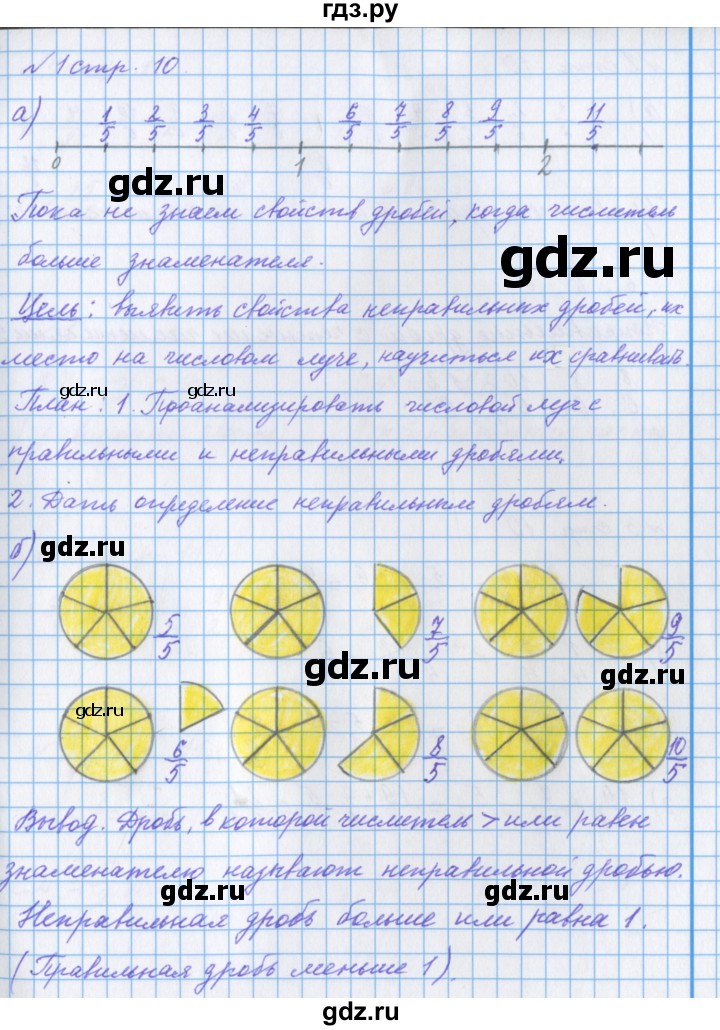 гдз.ру
№1 стр. 10
а) 1/5 2/5 3/5 4/5 6/5 7/5 8/5 9/5 11/5
0 1 2
gdz.ru
Пока не знаем свойств дробей, когда числитель
больше знаменателя.
gdz.ru
Цель: выявить свойства неправильных дробей, их
место на числовом луче, научиться их сравнивать.
gdz.ru gdz.ru
План: 1. Проанализировать числовой луч с
правильными и неправильными дробями
2. Дать определение неправильным дробям.
gdz.ru
б) 5/5 7/5 9/5
gdz.ru gdz.ru
gdz.ru
6/5 8/5 10/5
Вывод. Дробь, в которой числитель > или равен
знаменателю называют неправильной дробью.
gdz.ru gdz.ru
Неправильная дробь больше или равна 1.
(Правильная дробь меньше 1).
gdz.ru